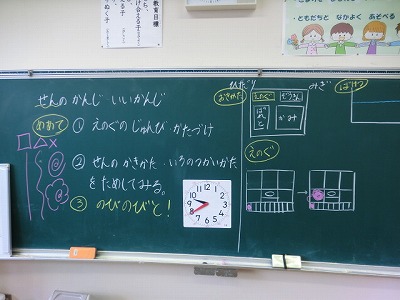 教育目標
・ともだちと なかよく あそべる
せんの かんじ いいかんじ
めあて
① えのぐの じゅんび かたづけ
② せんの かきかた いろの つかいかた
をためしてみる。
③ のびのびと!
ひだり
みぎ
おきかた
えのぐ
ぞうきん
ぱれっと
かみ
ばけつ
えのぐ